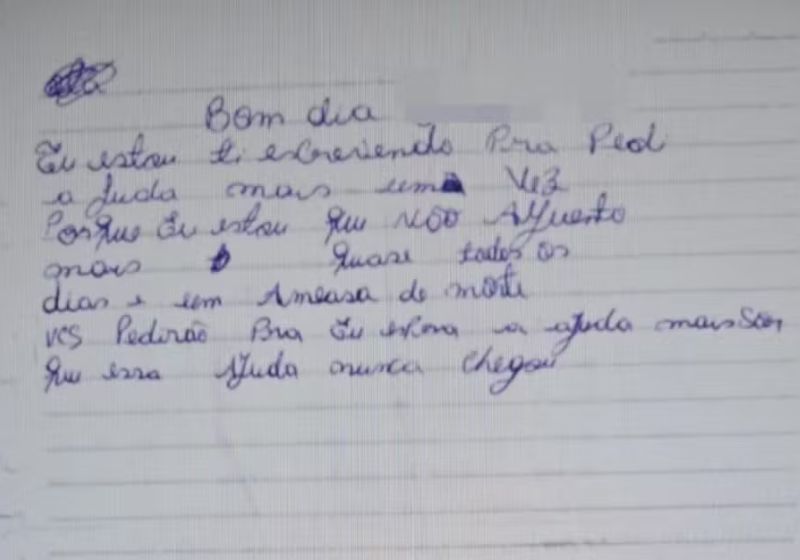 Bom dia
Eu estou ti escrevendo Pra Ped
a Juda mais uma Vez
Porque Eu estou que não Aguento
mais quase todos os
dias e um Ameasa de morte
vcs Pedirão Pra Eu espera a ajuda mais Som
que essa Ajuda nunca chegou